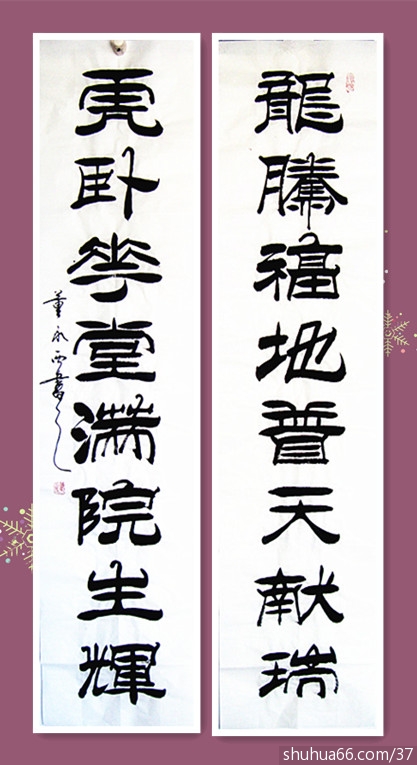 龍騰福地普天献瑞
虎卧華堂满院生輝
董永西書
shuhua66.com/37